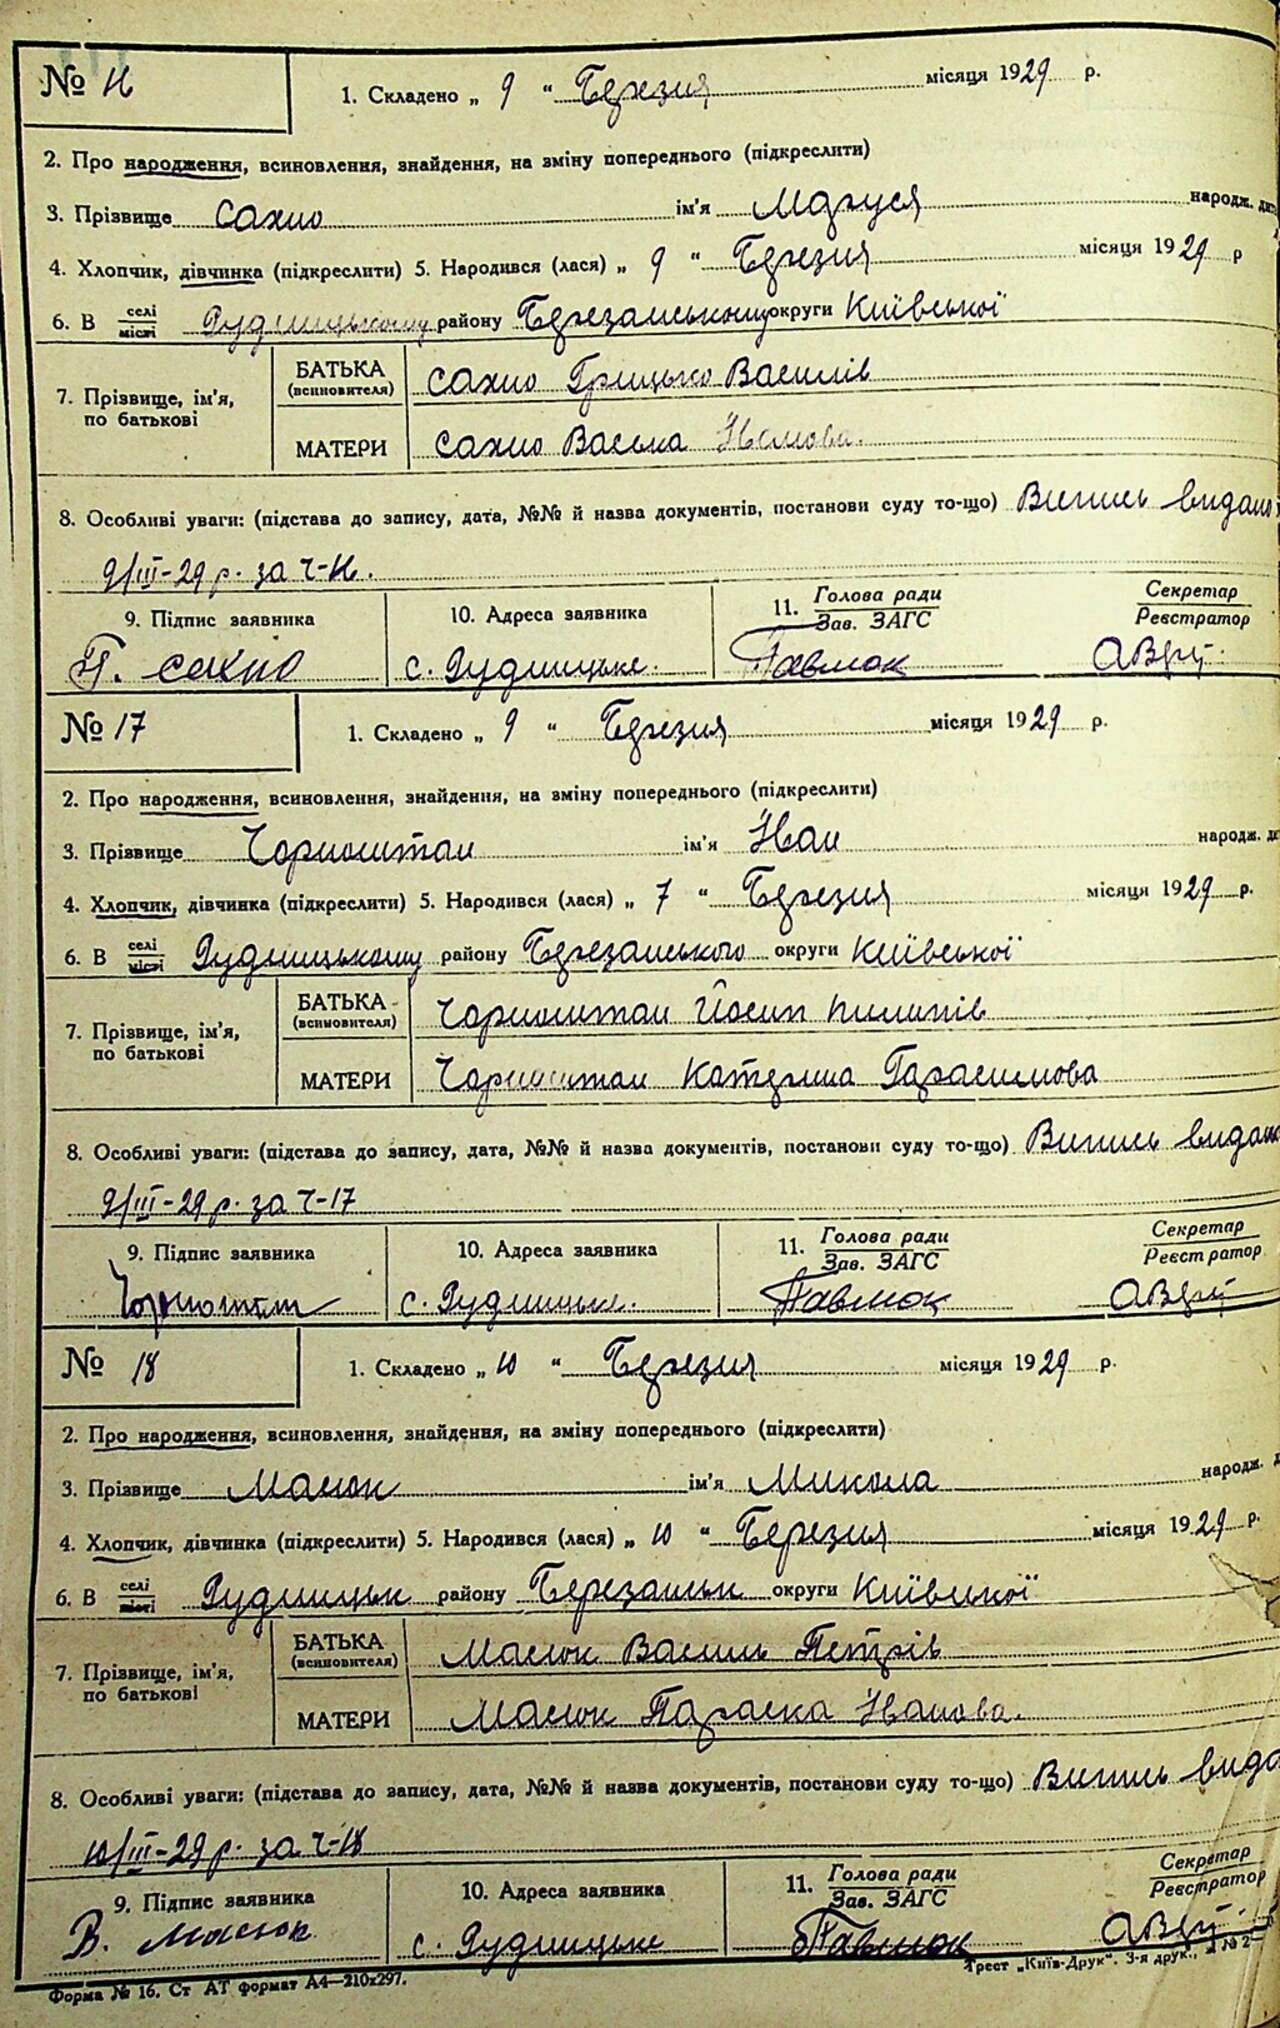 № 16
1. Складено „ 9 “ Березня місяця 1929 р.
2. Про народження, всиновлення, знайдення, на зміну попереднього (підкреслити)
3. Прізвище Сахно ім'я Маруся народж. ди
4. Хлопчик, дівчинка (підкреслити) 5. Народився (лася) „ 9 “ Березня місяця 1929 р
6. В селі/місті Рудницькому району Березанському округи Київської
7. Прізвище, ім'я, по батькові
БАТЬКА (всиновителя) Сахно Грицько Василів
МАТЕРИ Сахно Васька
8. Особливі уваги: (підстава до запису, дата, №№ й назва документів, постанови суду то-що) Випись видано
9/III-29 р. за Ч-16.
9. Підпис заявника 10. Адреса заявника 11. Голова ради/Зав. ЗАГС Секретар/Реєстратор
Г. Сахно с. Рудницьке. Павлюк
№ 17
1. Складено „ 9 “ Березня місяця 1929 р.
2. Про народження, всиновлення, знайдення, на зміну попереднього (підкреслити)
3. Прізвище Чорноштан ім'я Іван народж. ди
4. Хлопчик, дівчинка (підкреслити) 5. Народився (лася) „ 7 “ Березня місяця 1929 р.
6. В селі/місті Рудницькому району Березанського округи Київської
7. Прізвище, ім'я, по батькові
БАТЬКА (всиновителя) Чорноштан Йосип Пилипів
МАТЕРИ Чорноштан Катерина Гарасимова
8. Особливі уваги: (підстава до запису, дата, №№ й назва документів, постанови суду то-що) Випись видано
9/III-29 р. за Ч-17
9. Підпис заявника 10. Адреса заявника 11. Голова ради/Зав. ЗАГС Секретар/Реєстратор
Чорноштан с. Рудницьке. Павлюк
№ 18
1. Складено „ 10 “ Березня місяця 1929 р.
2. Про народження, всиновлення, знайдення, на зміну попереднього (підкреслити)
3. Прізвище Масюк ім'я Микола народж. д
4. Хлопчик, дівчинка (підкреслити) 5. Народився (лася) „ 10 “ Березня місяця 1929 р.
6. В селі/місті Рудницьк району Березанськ округи Київської
7. Прізвище, ім'я, по батькові
БАТЬКА (всиновителя) Масюк Василь Петрів
МАТЕРИ Масюк Параска Іванова.
8. Особливі уваги: (підстава до запису, дата, №№ й назва документів, постанови суду то-що) Випись вида
10/III-29 р. за Ч-18
9. Підпис заявника 10. Адреса заявника 11. Голова ради/Зав. ЗАГС Секретар/Реєстратор
В. Масюк с. Рудницьке Павлюк
Форма № 16. Ст АТ формат А4—210х297. Трест „Київ-Друк“. 3-я друк.,